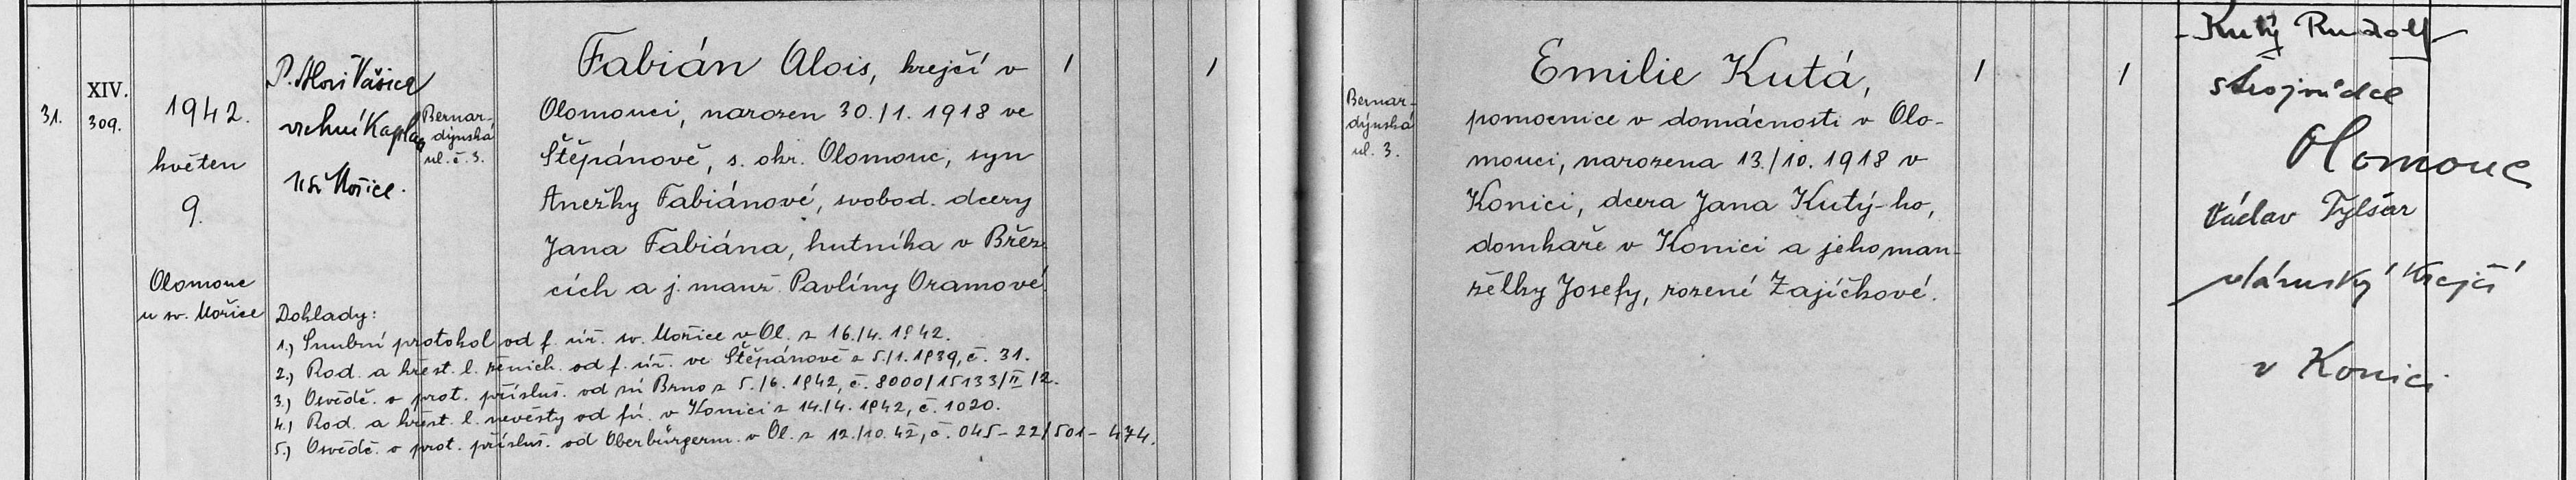 31.
XIV.
309.
1942.
květen
9.
Olomouc
u sv. Mořice
P. Alois Vašica
vrchní Kaplan
u sv. Mořice.
Bernar-
dýnská
ul. č. 3.
Fabián Alois, krejčí v
Olomouci, narozen 30./1. 1918 ve
Štěpánově, s. okr. Olomouc, syn
Anežky Fabiánové, svobod. dcery
Jana Fabiána, hutníka v Břez-
cích a j. manž. Pavlíny Oramové.
1
1
Doklady:
1.) Snubní protokol od f. úř. sv. Mořice v Ol. z 16./4. 1942.
2.) Rod. a křest. l. ženich. od f. úř. ve Štěpánově z 5./1. 1939, č. 31.
3.) Osvědč. o prot. přísluš. od Brno z 5./6. 1942, č. 8000/15133/II/2.
4.) Rod. a křest. l. nevěsty od fú. v Konici z 14./4. 1942, č. 1020.
5.) Osvědč. o prot. přísluš. od Oberbürgerm. v Ol. z 12./10. 42, č. 045-22/501-474.
Bernar-
dýnská
ul. 3.
Emilie Kutá,
pomocnice v domácnosti v Olo-
mouci, narozena 13./10. 1918 v
Konici, dcera Jana Kutý-ho,
domkaře v Konici a jeho man-
želky Josefy, rozené Zajíčkové.
1
1
Kutý Rudolf
strojvůdce
Olomouc
Václav Tylšar
dámský Krejčí
v Konici